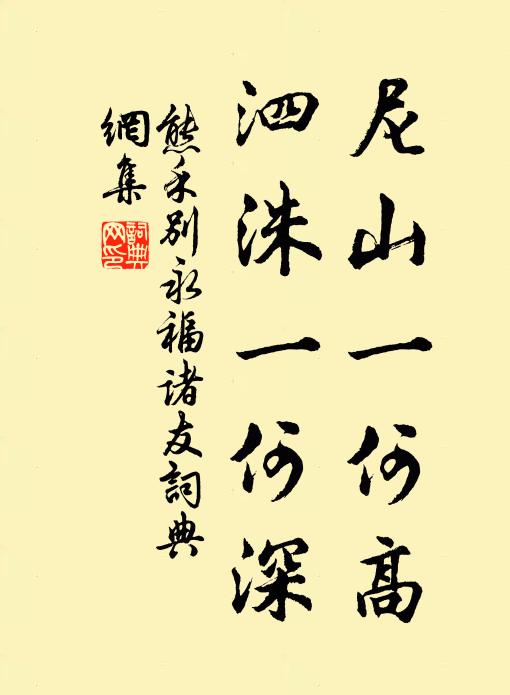 尼山一何高
泗洙一何深
熊禾別永福諸友詞典
網集
詞典網印